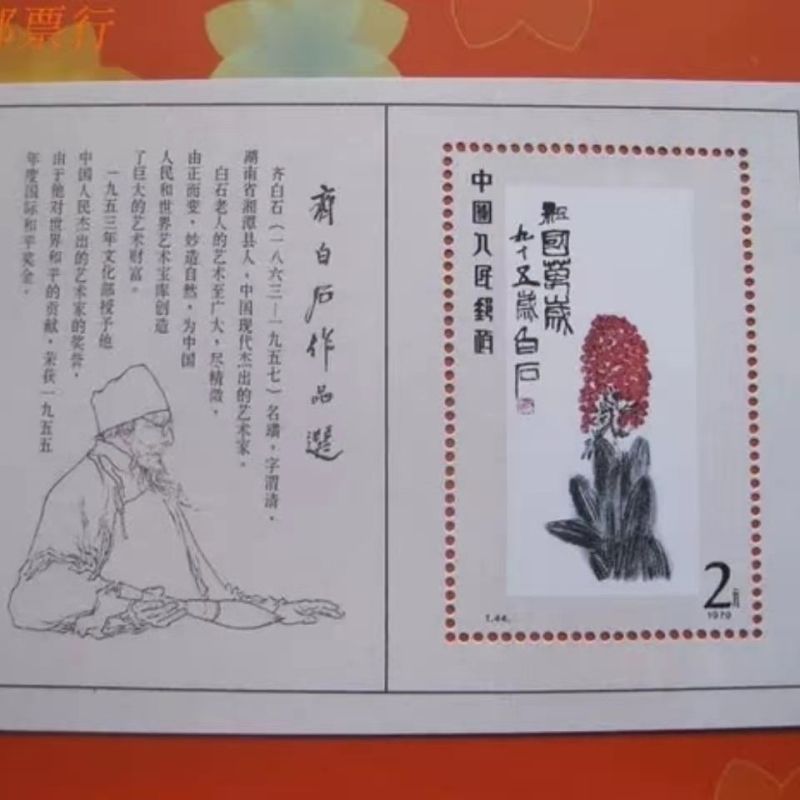 邮票行
齐白石作品选
齐白石（一八六三—一九五七）名璜，字渭清，
湖南省湘潭县人，中国现代杰出的艺术家。
白石老人的艺术至广大，尽精微，
由正而变，妙造自然，为中国
人民和世界艺术宝库创造
了巨大的艺术财富。
一九五三年文化部授予他
中国人民杰出的艺术家的奖誉，
由于他对世界和平的贡献，荣获一九五五
年度国际和平奖金。
中国人民邮政
祖國萬歲
九十五歲白石
T.44.
2元
1979